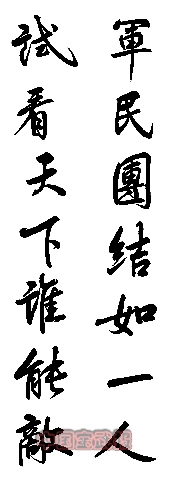 軍民團結如一人
試看天下誰能敵